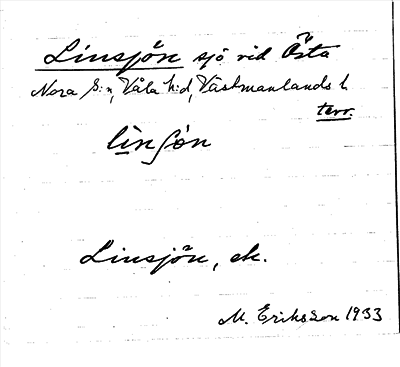 Linsjön sjö vid Östa
Nora s:n, Våla h:d, Västmanlands l.
terr.
li̱nʃön
Linsjön, ek.
M. Eriksson 1933